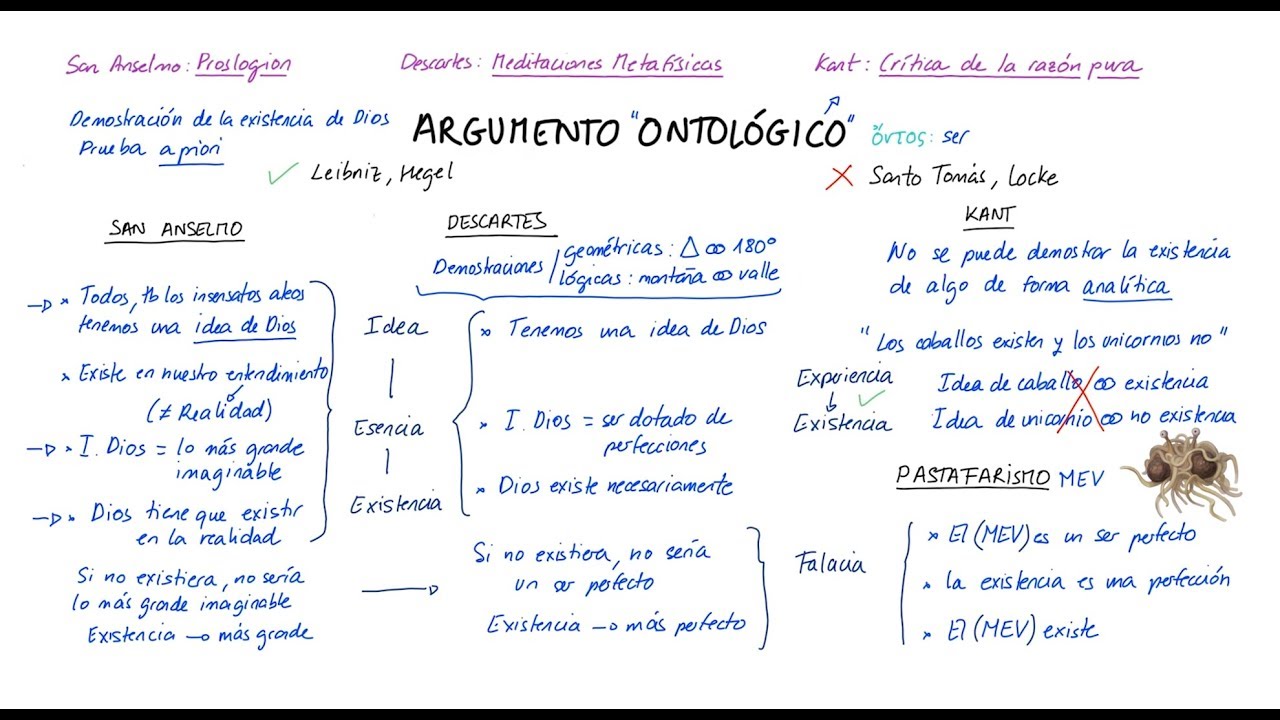 San Anselmo: Proslogion
Descartes: Meditaciones Metafísicas
Kant: Crítica de la razón pura
Demostración de la existencia de Dios
Prueba a piori
ARGUMENTO "ONTOLÓGICO"
ὄντος: ser
✓ Leibniz, Hegel
X Santo Tomás, Locke
SAN ANSELMO
→ * Todos, tb los insensatos ateos
tenemos una idea de Dios
* Existe en nuestro entendimiento
(≠ Realidad)
→ * I. Dios = lo más grande
imaginable
→ * Dios tiene que existir
en la realidad
Si no existiera, no sería
lo más grande imaginable
Existencia → más grande
Idea
Esencia
Existencia
DESCARTES
Demostraciones
geométricas: △ ∞ 180°
lógicas: montaña ∞ valle
* Tenemos una idea de Dios
* I. Dios = ser dotado de
perfecciones
* Dios existe necesariamente
Si no existiera, no sería
un ser perfecto
Existencia → más perfecto
Falacia
KANT
No se puede demostrar la existencia
de algo de forma analítica
"Los caballos existen y los unicornios no"
Experiencia
↳ ✓
Existencia
Idea de caballo ∞ existencia
Idea de unicornio ∞ no existencia
PASTAFARISMO MEV
* El (MEV) es un ser perfecto
* la existencia es una perfección
* El (MEV) existe